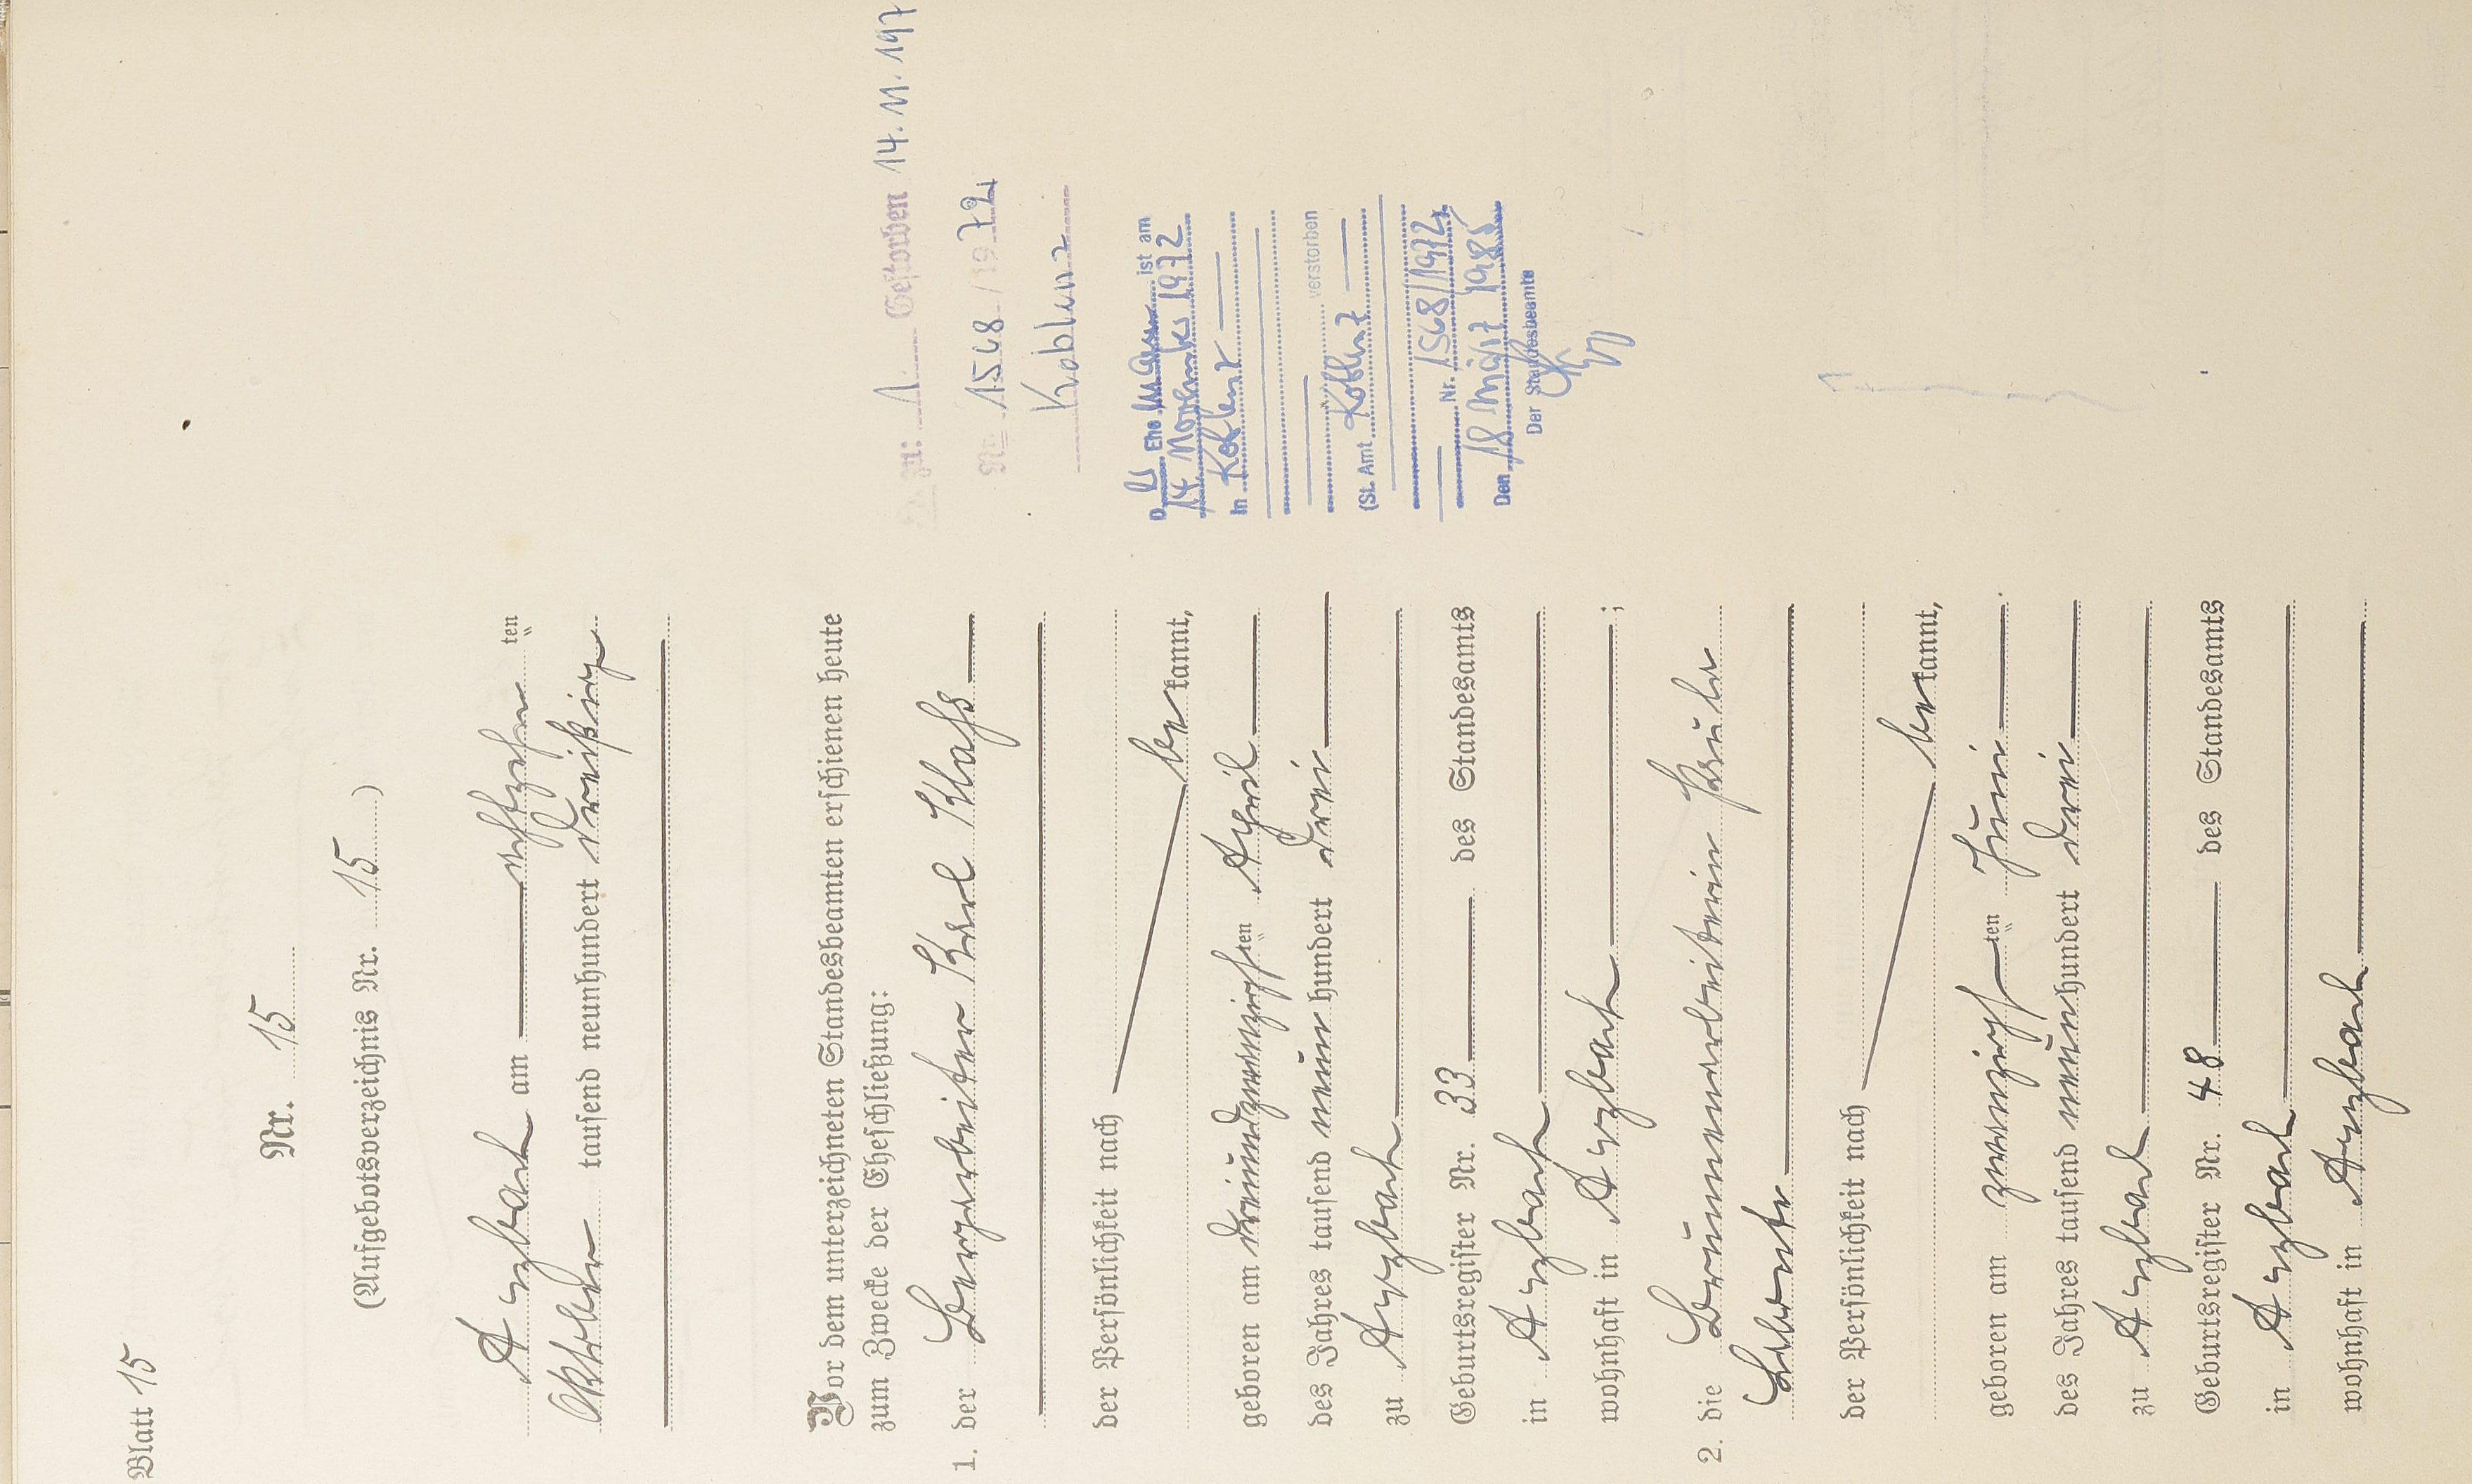 Blatt 15
Nr. 15
(Aufgebotsverzeichnis Nr. 15)
Arzbach am achtzehn ten
Oktober tausend neunhundert dreißig
Vor dem unterzeichneten Standesbeamten erschienen heute
zum Zwecke der Eheschließung:
1. der Bergarbeiter Karl Klaß
der Persönlichkeit nach
be kannt,
geboren am dreiundzwanzigsten April
des Jahres tausend neun hundert drei
zu Arzbach
Geburtsregister Nr. 33 des Standesamts
in Arzbach
wohnhaft in Arzbach ;
2. die Brunnenarbeiterin Paula
der Persönlichkeit nach
be kannt,
geboren am zwanzigsten Juni
des Jahres tausend neunhundert drei
zu Arzbach
Geburtsregister Nr. 48 des Standesamts
in Arzbach
wohnhaft in Arzbach
zu: 1 Gestorben 14.11.197
Nr. 1568 /1972
Koblenz
D er Ehemann ist am
14. November 1972
In Koblenz
verstorben
(St. Amt Koblenz
Nr. 1568/1972)
Den 18. März 1985
Der Standesbeamte